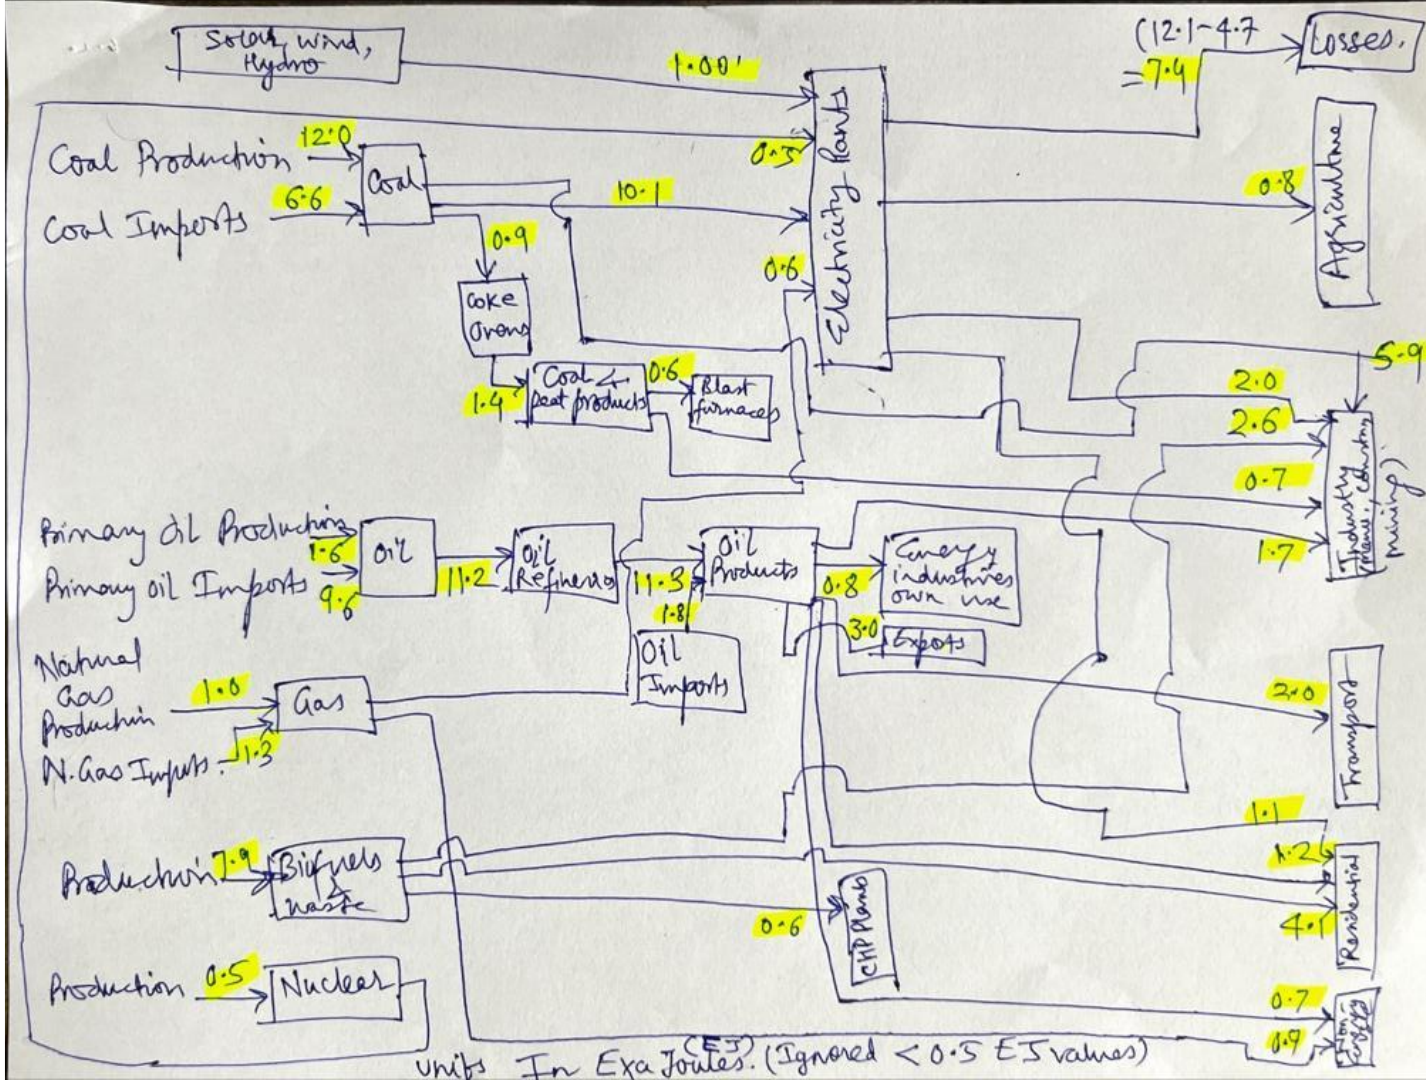 Solar, Wind,
Hydro
1.00
(12.1-4.7
= 7.4
Losses.
Coal Production
12.0
Coal Imports
6.6
Coal
10.1
0.5
0.6
Electricity Plants
0.8
Agriculture
0.9
Coke
Ovens
1.4
Coal &
Peat products
0.6
Blast
furnaces
5.9
2.0
2.6
0.7
1.7
Industry
mining)
Primary Oil Production
1.6
Primary oil Imports
9.6
Oil
11.2
Oil
Refineries
11.3
1.8
Oil
Products
0.8
Energy
industries
own use
3.0
Exports
Oil
Imports
Natural
Gas
Production
1.0
N. Gas Imports
1.3
Gas
2.0
Transport
1.1
1.2
4.1
Residential
Production
7.9
Biofuels
&
waste
0.6
CHP Plants
Production
0.5
Nuclear
0.7
0.9
Non-
units In Exa Joules. (EJ) (Ignored < 0.5 EJ values)